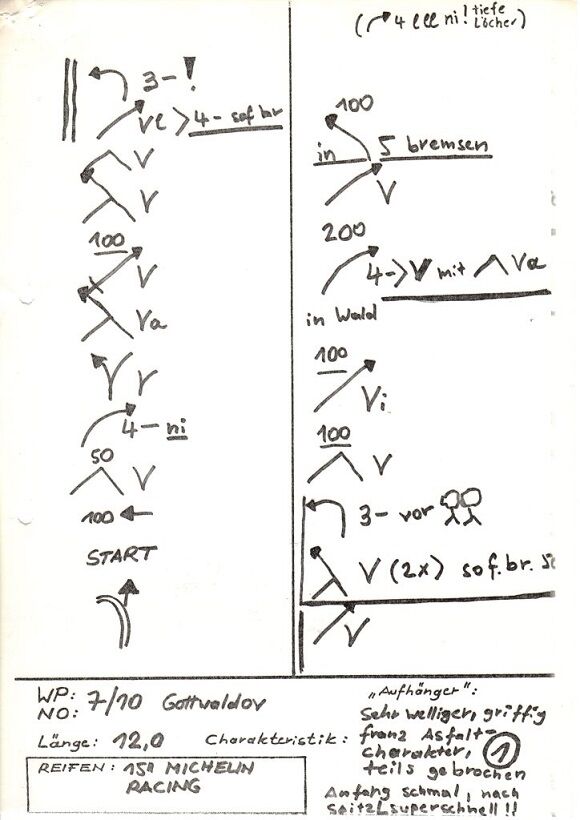 3-!
ve > 4- sof br
V
V
100
V
Va
V
4- ni
50
V
100
START
(4 lll ni! tiefe
Löcher)
100
in 5 bremsen
V
200
4-> V mit Va
in Wald
100
Vi
100
V
3- vor
V (2x) sof. br.
V
WP: 7/10 Gottwaldov
NO:
Länge: 12,0 Charakteristik:
REIFEN: 15" MICHELIN
RACING
„Aufhänger":
Sehr welliger, griffig
franz Asfalt-
charakter,
teils gebrochen
1
Anfang schmal, nach
superschnell!!